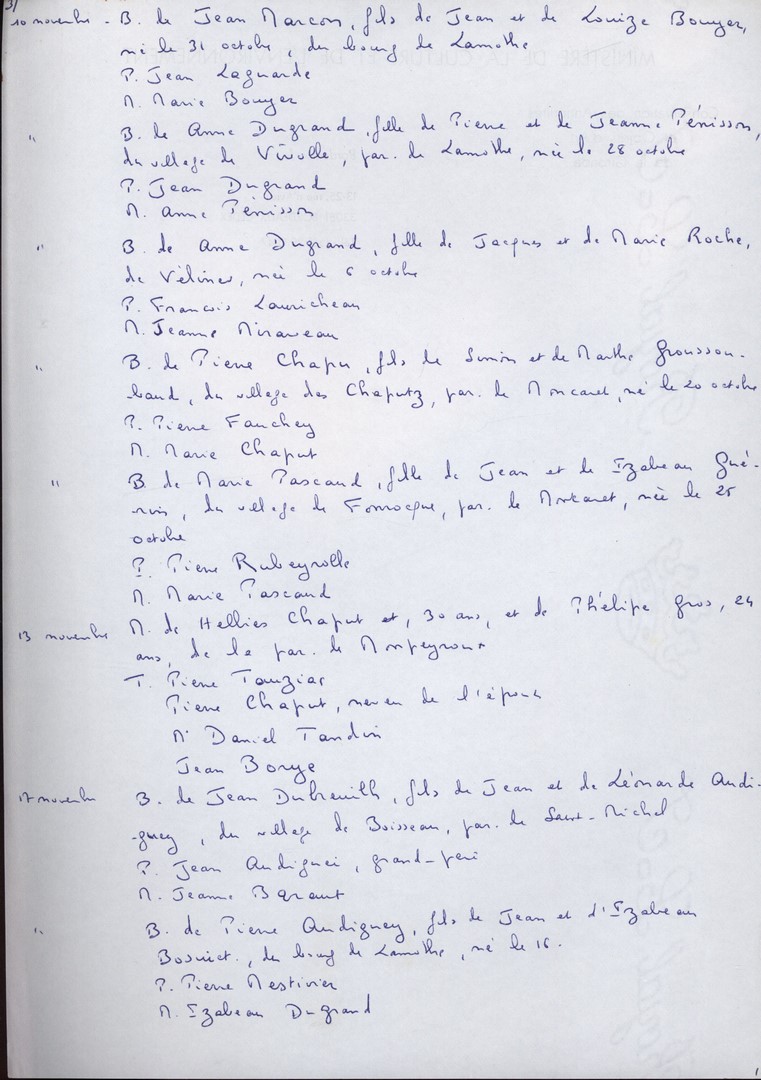 3/
10 novembre - B. de Jean Marcon, fils de Jean et de Louize Bouyer,
né le 31 octobre, du bourg de Lamothe
P. Jean Laguarde
M. Marie Bouyer
" B. de Anne Dugrand, fille de Pierre et de Jeanne Pénisson,
du village de Vivolle, par. de Lamothe, née le 28 octobre
P. Jean Dugrand
M. Anne Pénisson
" B. de Anne Dugrand, fille de Jacques et de Marie Roche,
de Vélines, née le 6 octobre
P. François Lauricheau
M. Jeanne Miraveau
" B. de Pierre Chapu, fils de Simon et de Marthe Grousson-
baud, du village des Chaputz, par. de Moncaret, né le 20 octobre
P. Pierre Fauchey
M. Marie Chaput
" B de Marie Pascaud, fille de Jean et de Izabeau Gué-
rin, du village de Fonrocque, par. de Montcaret, née le 25
octobre
P. Pierre Rubeyrolle
M. Marie Pascaud
13 novembre M. de Hellies Chaput et, 30 ans, et de Phélipe Gros, 24
ans, de la par. de Monpeyroux
T. Pierre Tauziac
Pierre Chaput, neveu de l'époux
Mr Daniel Tandin
Jean Borye
17 novembre B. de Jean Dubreuilh, fils de Jean et de Léonarde Audi-
-guey, du village de Boisseau, par. de Saint-Michel
P. Jean Audiguei, grand-père
M. Jeanne Baraut
" B. de Pierre Audiguey, fils de Jean et d'Izabeau
du bourg de Lamothe, né le 16.
P. Pierre Mestivier
M. Izabeau Dugrand